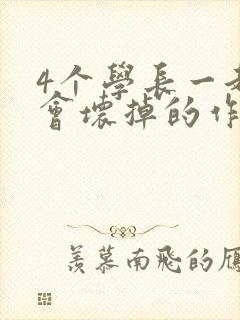 4个學長一
會壞掉的作
羡慕南飛的